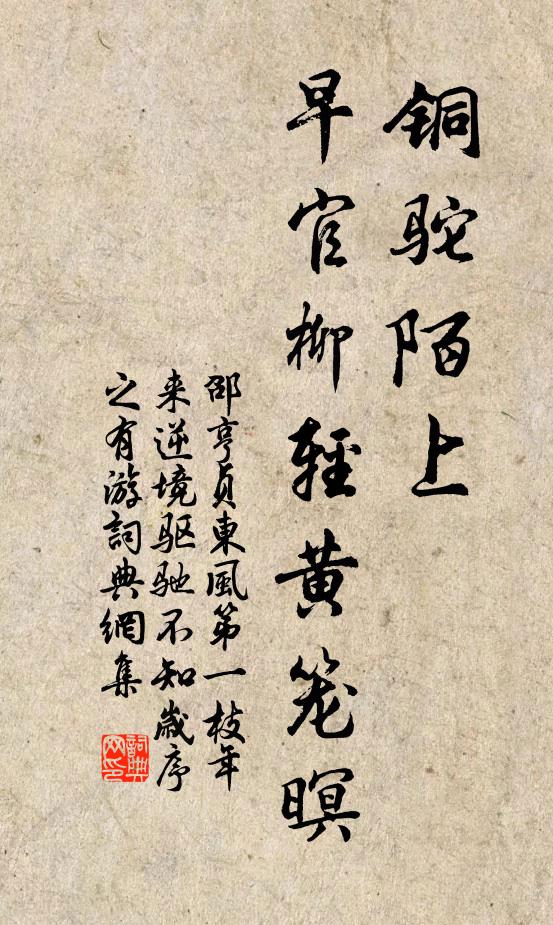 铜驼陌上
早官柳轻黄笼暝
邵亨貞東風第一枝年
来逆境驱驰不知歲序
之有游詞典網集
詞典網印